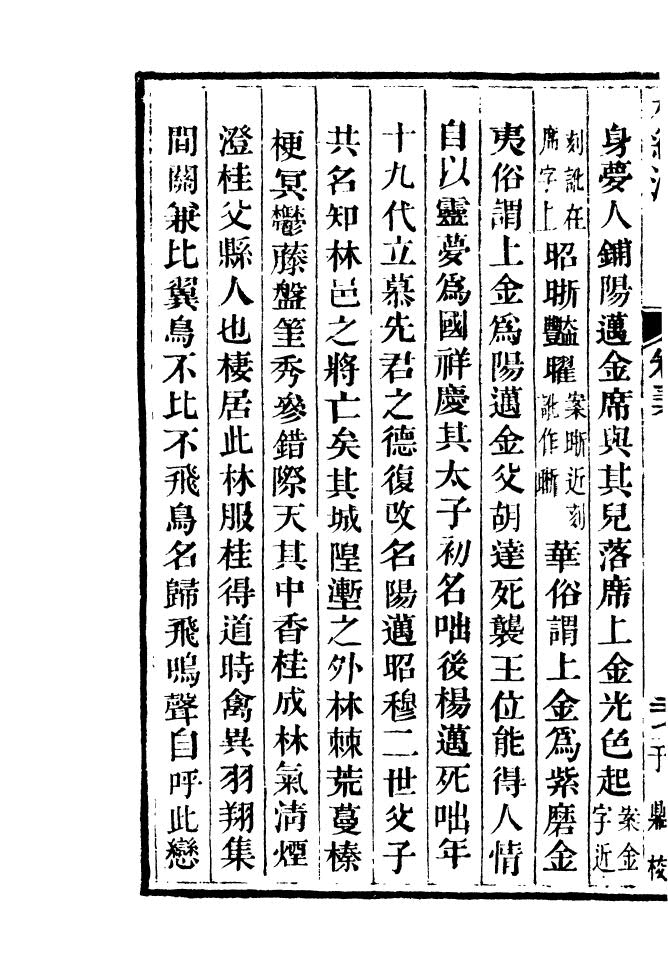 身夢人鋪陽邁金席與其兒落席上金光色起案金字近
刻訛在席字上昭晰豔曜案晰近刻訛作華俗謂上金爲紫磨金
夷俗謂上金爲陽邁金父胡達死襲王位能得人情
自以靈夢爲國祥慶其太子初名咄後楊邁死咄年
十九代立慕先君之德復改名陽邁昭穆二世父子
共名知林邑之將亡矣其城隍壍之外林棘荒蔓榛
梗冥鬱藤盤筀秀參錯際天其中香桂成林氣淸煙
澄桂父縣人也棲居此林服桂得道時禽異羽翔集
間關兼比翼鳥不比不飛鳥名歸飛鳴聲自呼此戀